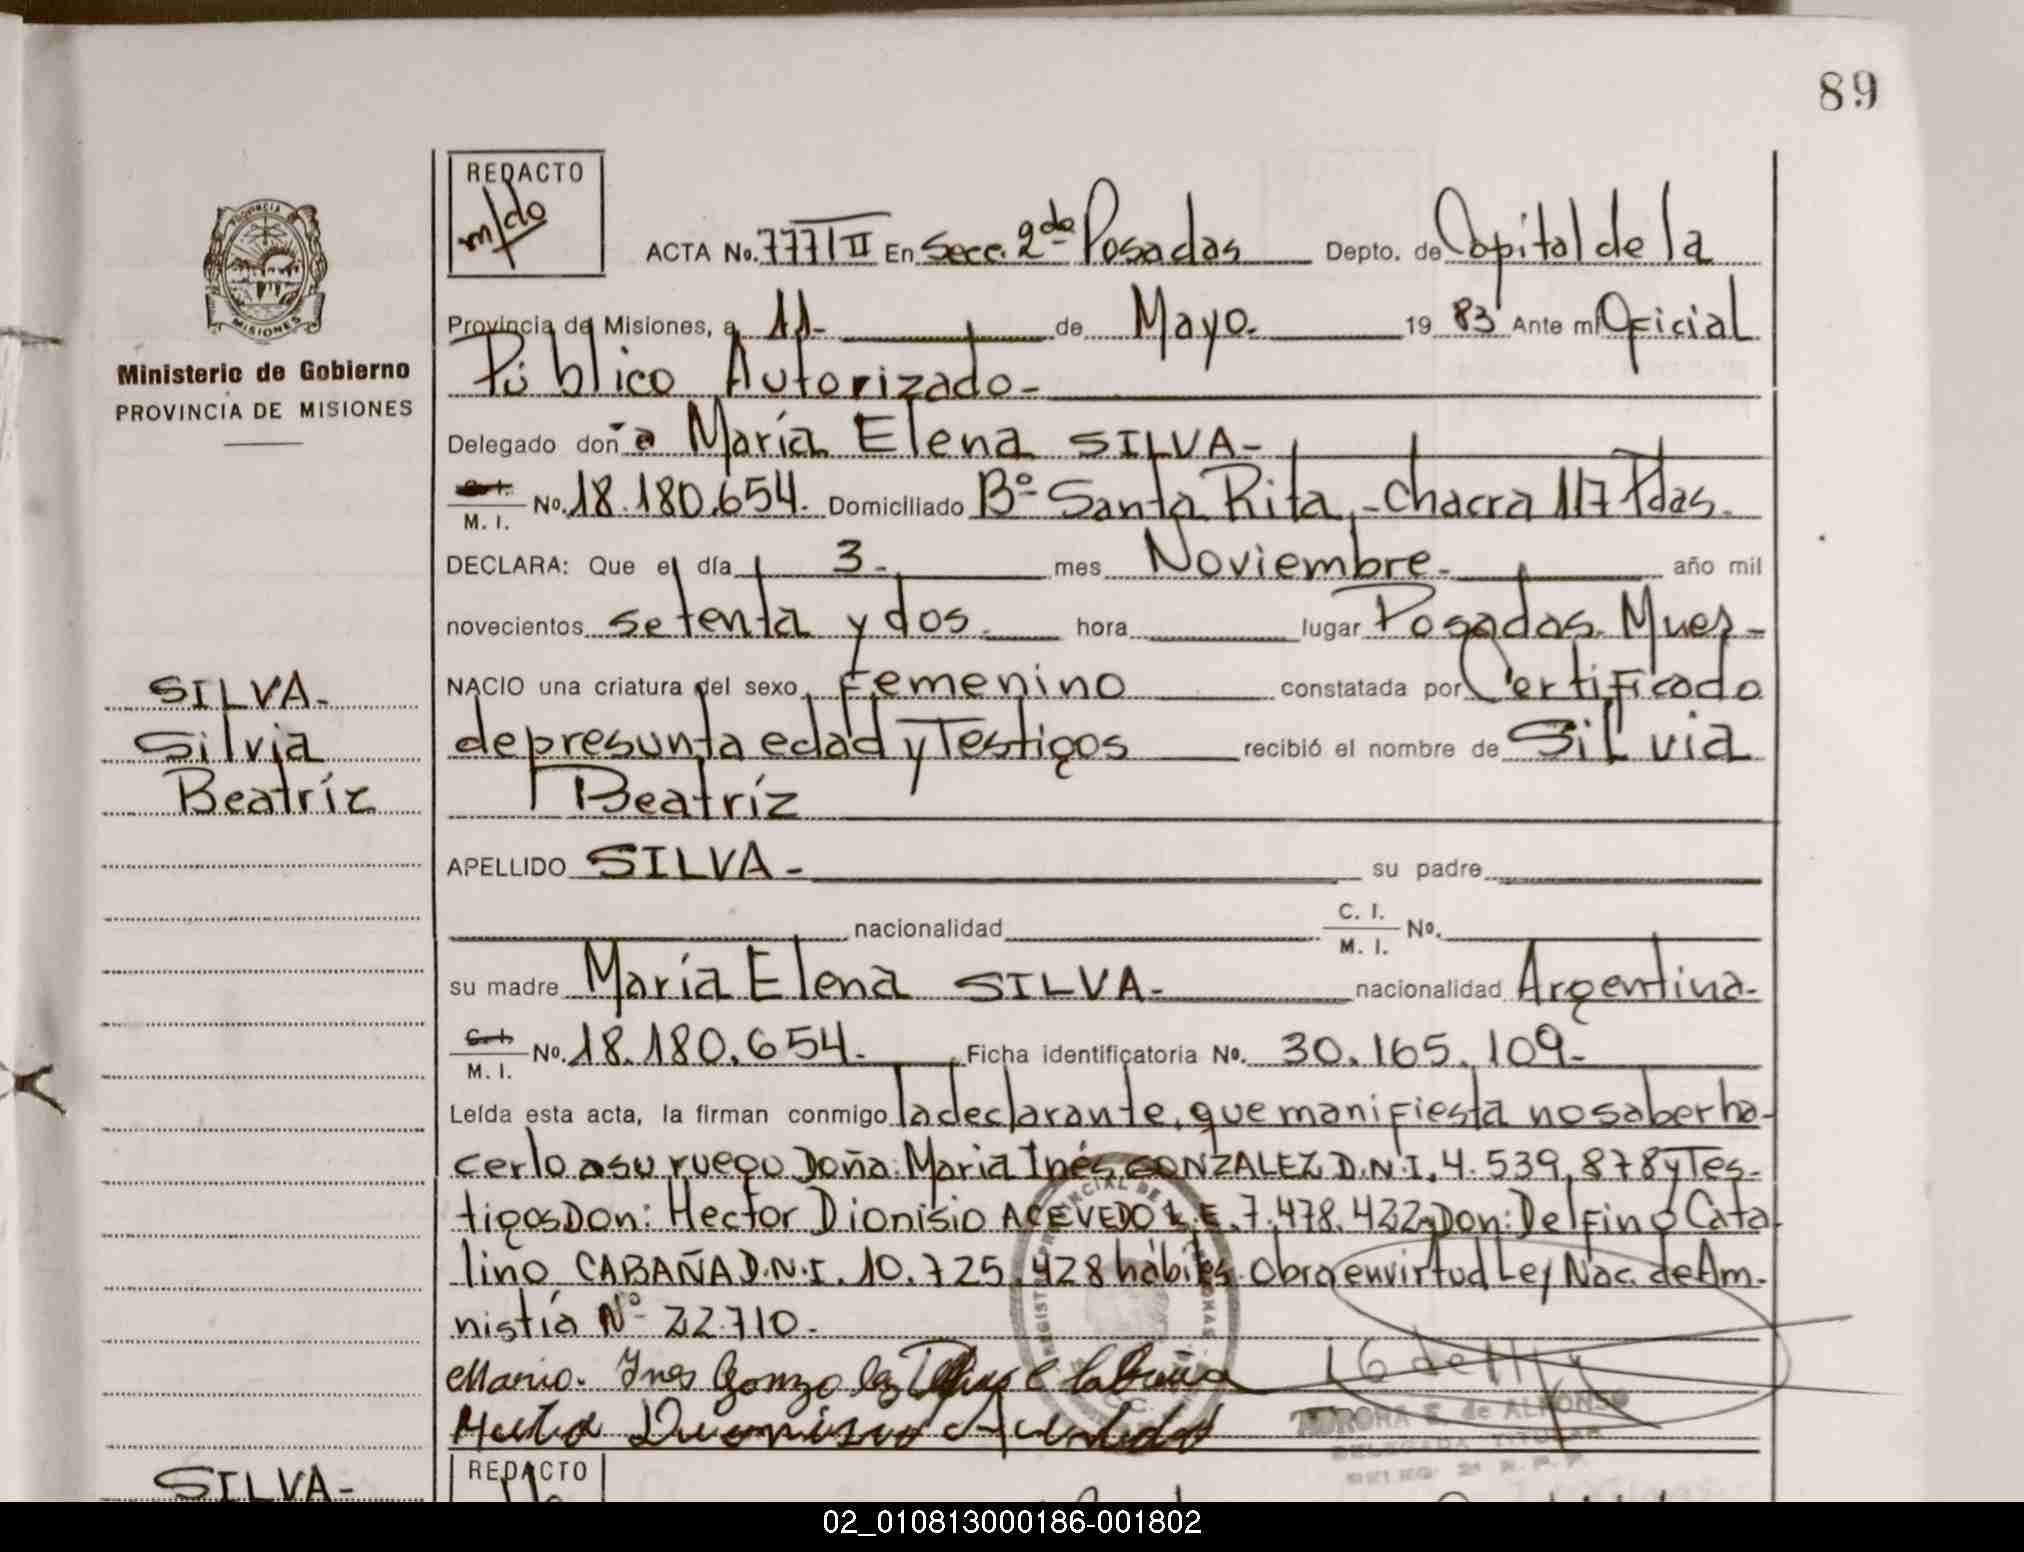 89
REDACTO
m/do
ACTA No. 777/II En Secc. 2da Posadas Depto. de Capital de la
PROVINCIA
MISIONES
Provincia de Misiones, a 11- de Mayo. 1983 Ante mi Oficial
Ministerio de Gobierno
PROVINCIA DE MISIONES
Público Autorizado-
Delegado don a María Elena SILVA-
M. I. No. 18.180.654. Domiciliado Bº Santa Rita,-chacra 117 Pdas.
DECLARA: Que el día 3- mes Noviembre- año mil
novecientos setenta y dos- hora lugar Posadas. Mnes-
NACIO una criatura del sexo femenino constatada por Certificado
SILVA-
Silvia
Beatríz
de presunta edad y Testigos recibió el nombre de Silvia
Beatríz
APELLIDO SILVA- su padre
nacionalidad C. I. M. I. No.
su madre María Elena SILVA- nacionalidad Argentina-
M. I. No. 18.180.654.- Ficha identificatoria No. 30.165.109-
Leída esta acta, la firman conmigo la declarante, que manifiesta no saber ha-
cerlo a su ruego Doña: Maria Inés GONZALEZ D.N.I. 4.539.878 y Tes-
tigos Don: Hector Dionisio ACEVEDO L.E. 7.478.422 y Don: Delfino Cata
lino CABAÑA D.N.I. 10.725.428 hábiles. Obra en virtud Ley Nac. de Am-
nistía Nº 22.710-
Maria. Ines Gonzalez
AURORA E. de ALFONSO
DELEGADA TITULAR
REDACTO
SILVA-
02_010813000186-001802